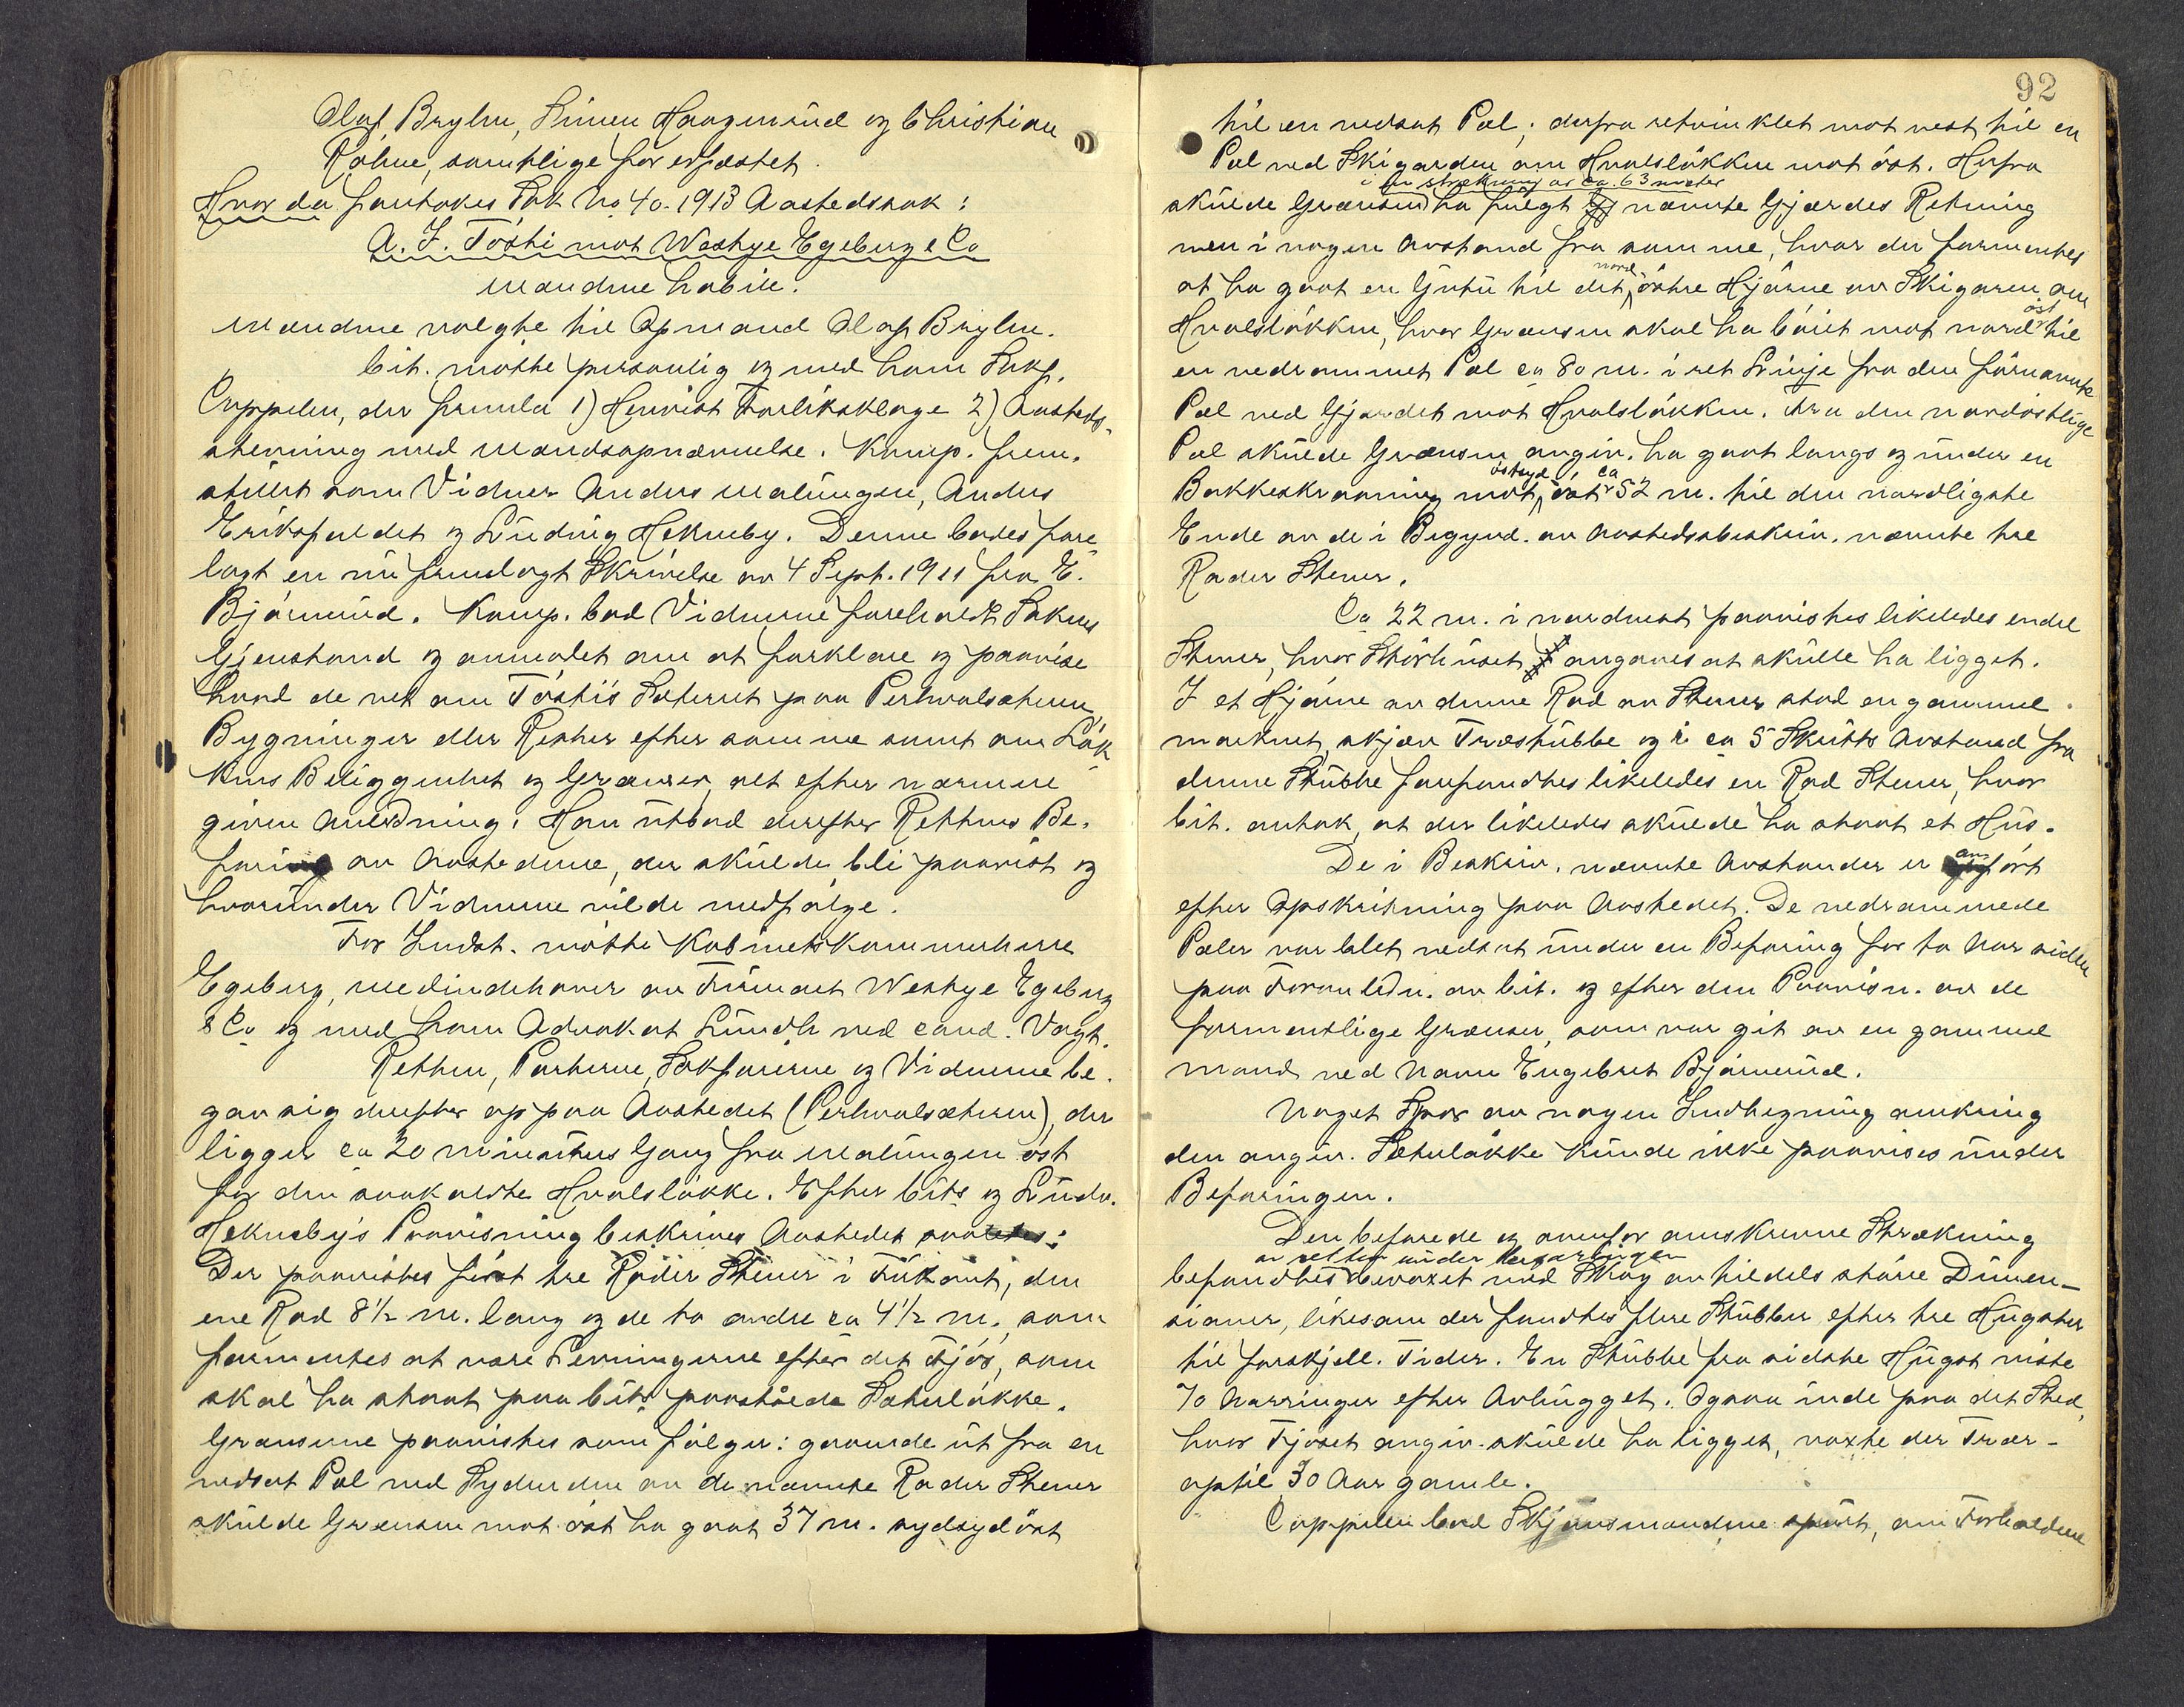 Olaf Brylm, Simen Haugerud og Christian
Rolme, samtlige før edfæstet.
Hvor da foretokes Sak No 40. 1913 Aastedssak:
A. J. Tosti mot Westye Egeberg & Co
Mændene habile.
Mændene valgte til Opmand Olaf Brylm.
Cit. møtte personlig og med ham Sakf.
Cappelen, der fremla 1) Henvist Forliksklage 2) Aasteds-
stevning med Mændsopnævnelse. Komp. frem-
stillet som Vidner Anders Malungen, Anders
Eriksfaldet og Ludvig Hekneby. Denne bades fore-
lagt en nu fremlagt Skrivelse av 4 Sept. 1911 fra E.
Bjørnerud. Komp. bad Vidnerne foreholdt Sakens
Gjenstand og anmodet om at forklare og paavise
hvad de vet om Tosti's Sæterret paa Perhvalsæteren
Bygninger eller Rester efter samme samt om Løk-
kens Beliggenhet og Grænser, alt efter nærmere
given Anledning. Han utbad derefter Rettens Be-
faring av Aastederne, der skulde bli paavist og
hvorunder Vidnerne vilde medfølge.
For Indst. møtte Kabinetskammerherre
Egeberg, Medindehaver av Firmaet Westye Egeberg
& Co og med ham Advokat Lundh ved cand. Vogt.
Retten, Parterne, Sakførerne og Vidnerne be-
gav sig derefter op paa Aastedet (Perhvalsæteren), der
ligger ca 20 minutters Gang fra Malungen øst
for den saakaldte Hvalsløkke. Efter Cits og Ludv.
Hekneby's Paavisning beskrives Aastedet saaledes:
Der paavistes først tre Rader Stener i Firkant, den
ene Rad 8½ m. lang og de to andre ca 4½ m., som
formentes at være Levningerne efter det Fjøs, som
skal ha staat paa Cits paastaaede Sæterløkke.
Grænserne paavistes som følger: gaaende ut fra en
nedsat Pæl ved Sydenden av de nævnte Rader Stener
skulde Grænsen mot øst ha gaat 37 m. sydsydøst
92
til en nedsat Pæl; derfra retvinklet mot vest til en
Pæl ved Skigarden om Hvalsløkken mot øst. Herfra
i en strækning av ca. 63 meter
skulde Grænsen ha fulgt nævnte Gjærdes Retning
men i nogen Avstand fra samme, hvor der formentes
at ha gaat en Gutu til det nord østre Hjørne av Skigaren om
Hvalsløkken, hvor Grænsen skal ha bøiet mot nordøst til
en nedrammet Pæl ca 80 m. i ret Linje fra den førnævnte
Pæl ved Gjærdet mot Hvalsløkken. Fra den nordøstlige
Pæl skulde Grænsen angiv. ha gaat langs og under en
Bakkeskraaning mot østsyd øst ca 52 m. til den nordligste
Ende av de i Begynd. av Aastedsbeskriv. nævnte tre
Rader Stener.
Ca 22 m. i nordvest paavistes likeledes endel
Stener, hvor Størhuset angaves at skulle ha ligget.
I et Hjørne av denne Rad av Stener stod en gammel
morknet, skjæv Træstubbe og i ca 5 Skritts Avstand fra
denne Stubbe forefandtes likeledes en Rad Stener, hvor
Cit. antok, at der likeledes skulde ha staat et Hus.
De i Beskriv. nævnte Avstander er anført
efter Opskritning paa Aastedet. De nedrammede
Pæler var blet nedsat under en Befaring for to Aar siden
paa Foranledn. av Cit. og efter den Paavisn. av de
formentlige Grænser, som var git av en gammel
Mand ved Navn Engebret Bjørnerud.
Noget Spor av nogen Indhegning omkring
den angiv. Sæterløkke kunde ikke paavises under
Befaringen.
Den befarede og ovenfor omskrevne Strækning
av retten under befaringen
befandtes bevoxet med Skog av tildels større Dimen-
sioner, likesom der fandtes flere Stubber efter tre Hugster
til forskjell. Tider. En Stubbe fra sidste Hugst viste
70 Aarringer efter Avhugget. Ogsaa inde paa det Sted,
hvor Fjøset angiv. skulde ha ligget, voxte der Trær
optil 30 Aar gamle.
Cappelen bad Skjønsmændene spurt, om Forholdene